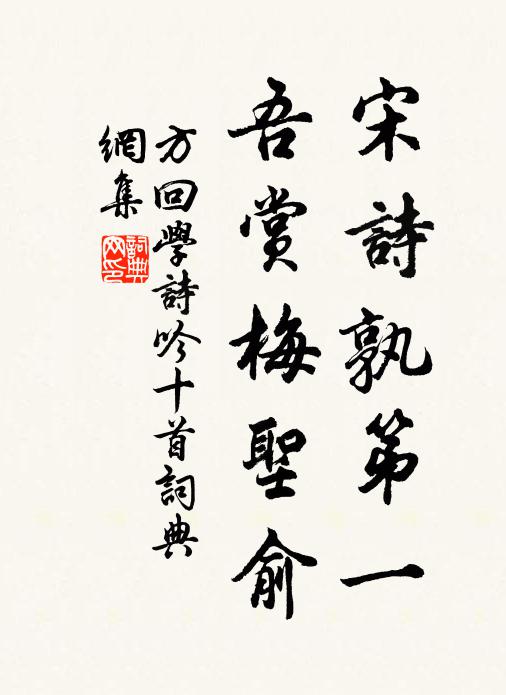 宋詩孰第一
吾賞梅聖俞
方回學詩吟十首詞典
網集
詞典网印